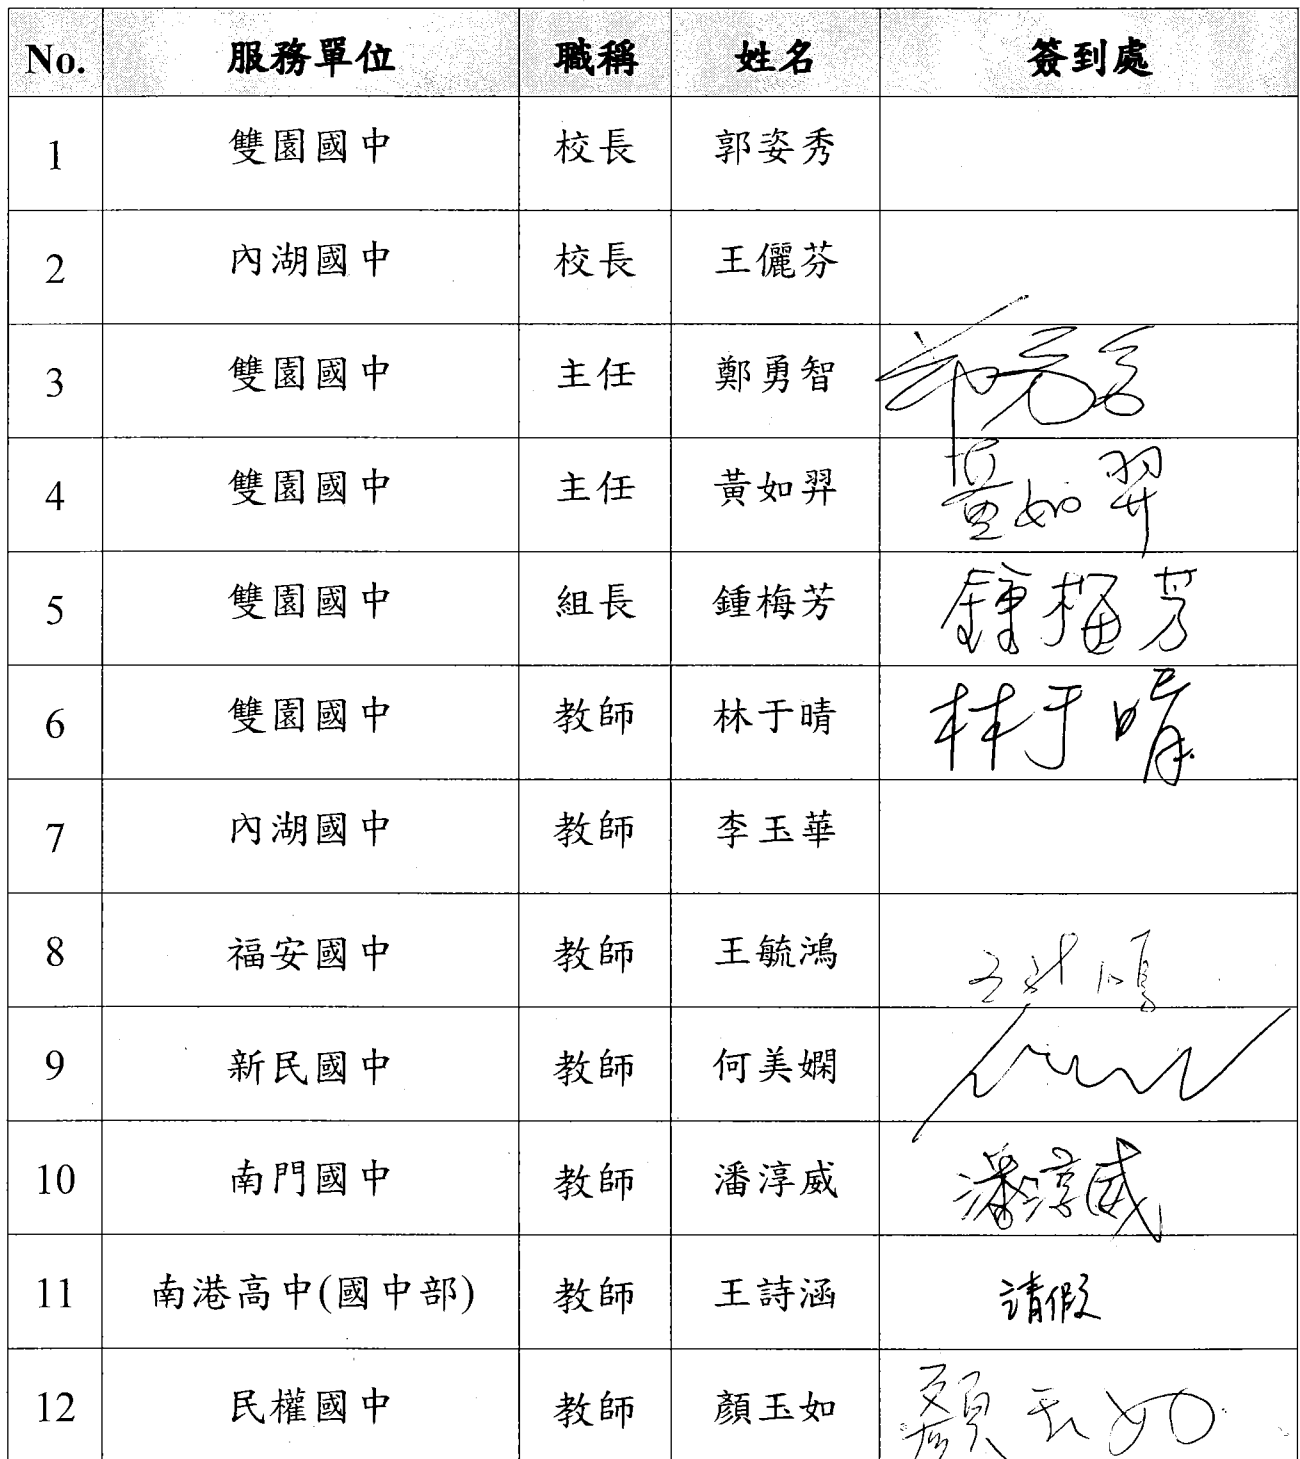 No. 服務單位 職稱 姓名 簽到處
1 雙園國中 校長 郭姿秀
2 內湖國中 校長 王儷芬
3 雙園國中 主任 鄭勇智
4 雙園國中 主任 黃如羿 黃如羿
5 雙園國中 組長 鍾梅芳 鍾梅芳
6 雙園國中 教師 林于晴 林于晴
7 內湖國中 教師 李玉華
8 福安國中 教師 王毓鴻
9 新民國中 教師 何美嫻
10 南門國中 教師 潘淳威 潘淳威
11 南港高中(國中部) 教師 王詩涵 請假
12 民權國中 教師 顏玉如 顏玉如